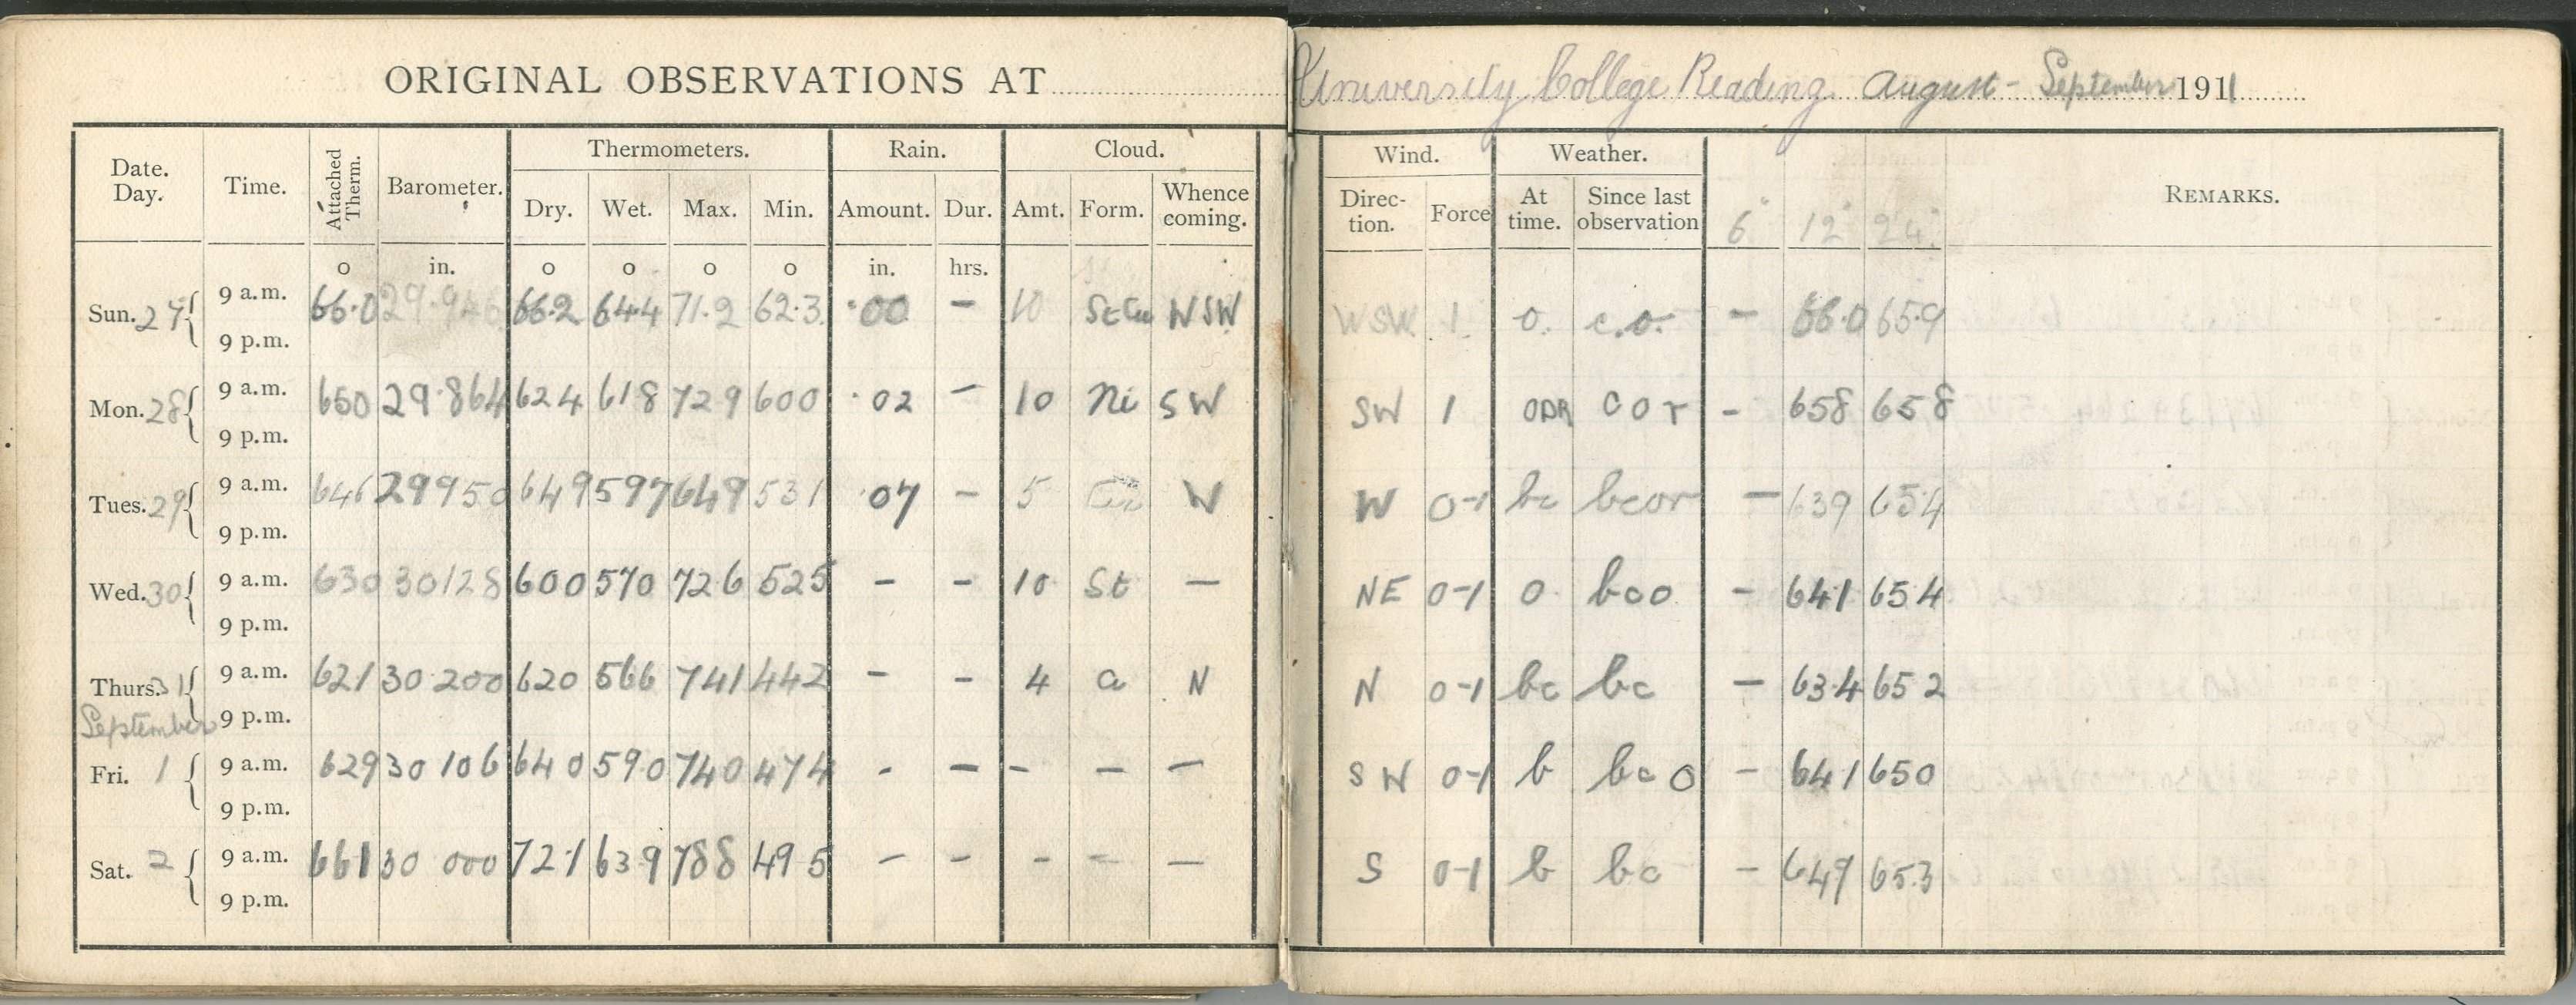 ORIGINAL OBSERVATIONS AT University College Reading August - September 1911
Date. Day. Time. Attached Therm. Barometer. Thermometers. Rain. Cloud. Wind. Weather. REMARKS.
Dry. Wet. Max. Min. Amount. Dur. Amt. Form. Whence coming. Direc- tion. Force At time. Since last observation 6" 12" 24"
o in. o o o o in. hrs.
Sun. 27 9 a.m. 66.0 29.946 66.2 64.4 71.2 62.3 .00 - 10 StCu WSW WSW 1 o. c.o. - 66.0 65.9
9 p.m.
Mon. 28 9 a.m. 650 29.864 624 618 729 600 .02 - 10 Ni SW SW 1 cor - 658 658
9 p.m.
Tues. 29 9 a.m. 646 29950 649 597 649 531 .07 - 5 Cu W W 0-1 bc bcor - 639 654
9 p.m.
Wed. 30 9 a.m. 630 30128 600 570 726 525 - - 10 St - NE 0-1 o bco - 641 654
9 p.m.
Thurs. 31 9 a.m. 621 30 200 620 566 741 442 - - 4 N N 0-1 bc bc - 634 652
September 9 p.m.
Fri. 1 9 a.m. 629 30 106 640 590 740 474 - - - - - SW 0-1 b bco - 641 650
9 p.m.
Sat. 2 9 a.m. 661 30 000 72.1 639 788 49.5 - - - - - S 0-1 b bc - 649 65.3
9 p.m.